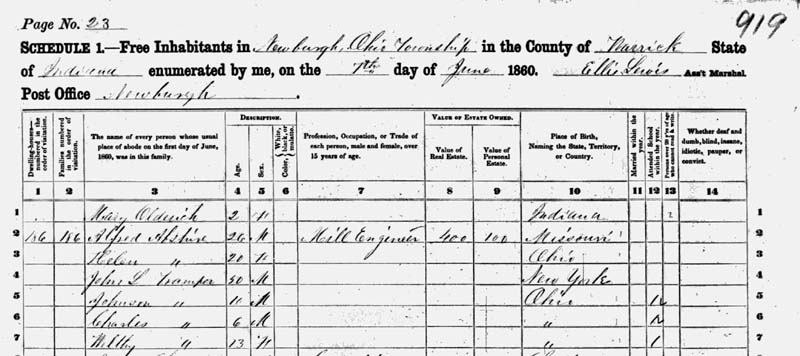 Page No. 23
919
SCHEDULE 1.—Free Inhabitants in Newburgh, Ohio Township in the County of Warrick State
of Indiana enumerated by me, on the 7th day of June 1860. Ellis Lewis Ass't Marshal.
Post Office Newburgh
Dwelling-houses—numbered in the order of visitation.
Families numbered in the order of visitation.
The name of every person whose usual place of abode on the first day of June, 1860, was in this family.
DESCRIPTION.
Age.
Sex.
Color, White, black, or mulatto.
Profession, Occupation, or Trade of each person, male and female, over 15 years of age.
VALUE OF ESTATE OWNED.
Value of Real Estate.
Value of Personal Estate.
Place of Birth, Naming the State, Territory, or Country.
Married within the year.
Attended School within the year.
Persons over 20 y'rs of age who cannot read & write.
Whether deaf and dumb, blind, insane, idiotic, pauper, or convict.
1 2 3 4 5 6 7 8 9 10 11 12 13 14
1 Mary Olderich 2 Indiana 1
2 186 186 Alfred Abshire 26 M Mill Engineer 400 100 Missouri 2
3 Helen " 20 Ohio 3
4 John L 50 M New York 4
5 Johnson " 11 M Ohio 5
6 Charles " 6 M " 6
7 " 13 " 7